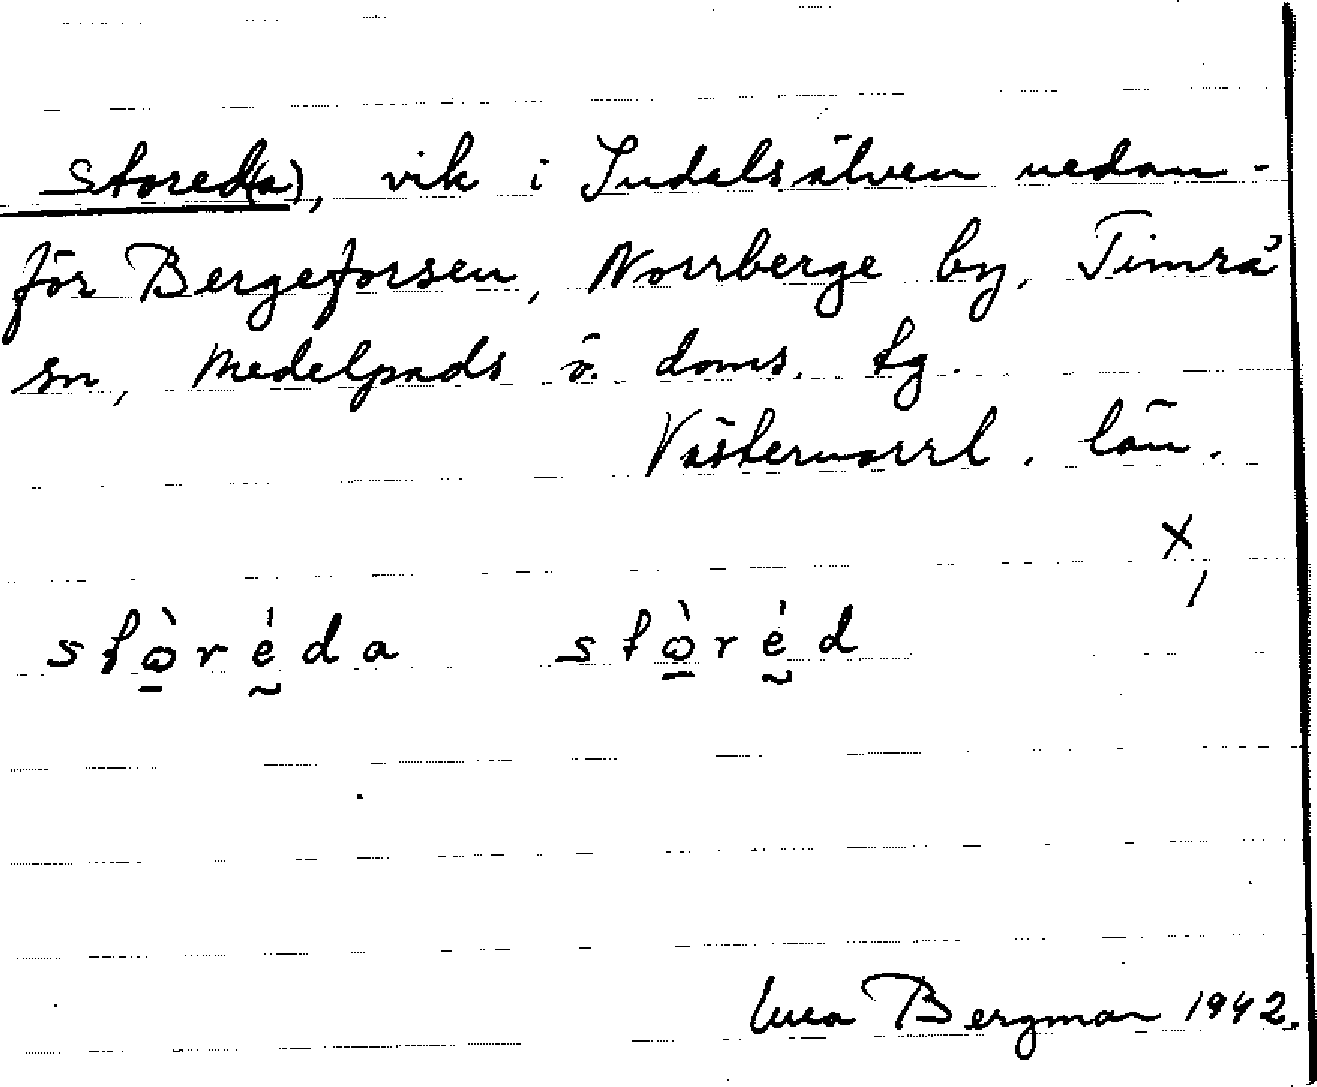 Stored(a), vik i Indalsälven nedan-
för Bergeforsen, Norrberge by, Timrå
sn, Medelpads ö. doms. tg.
Västernorrl. län.
x,
stò̱rḛ́da stò̱rḛ́d
Bergman 1942.